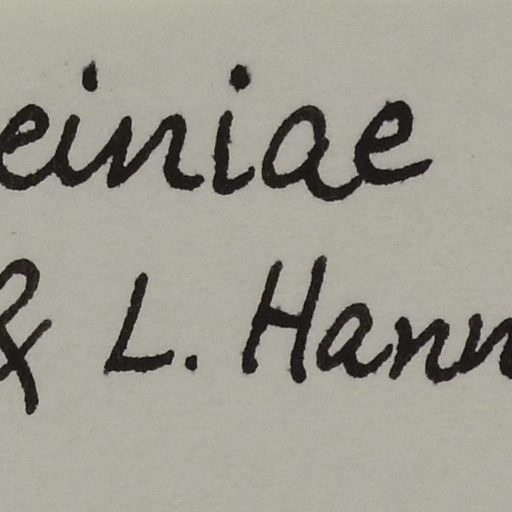 einiae
& L. Hann